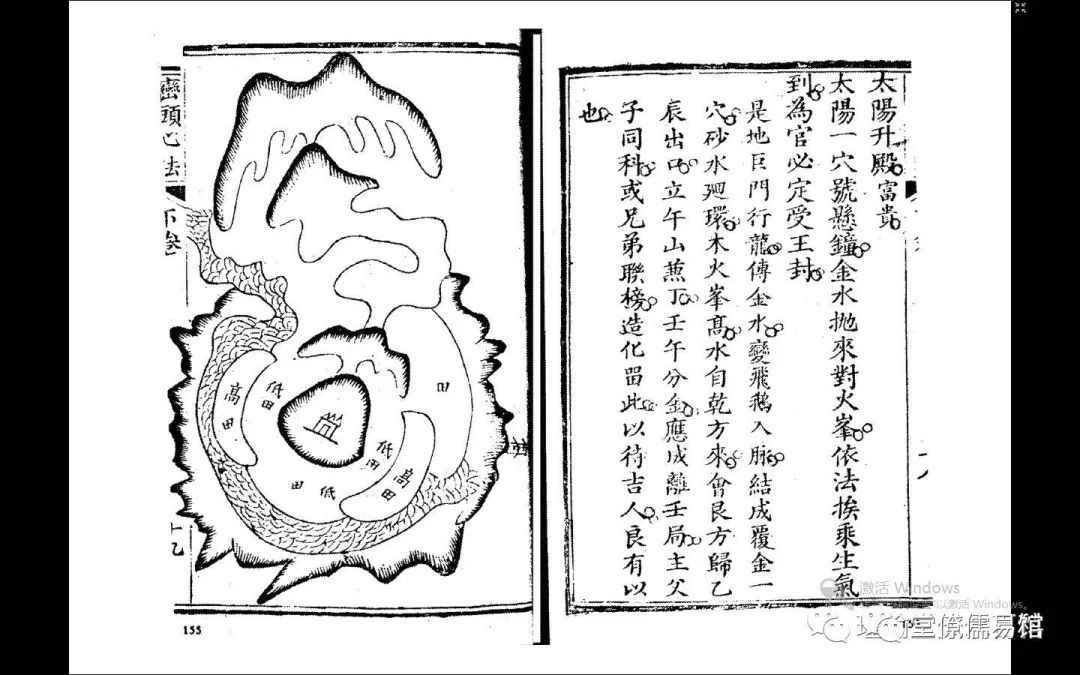 太陽升殿富貴
太陽一穴號懸鐘金水拋來對火峯依法挨乘生氣
到為官必定受王封
是地巨門行龍傳金水變飛鵝入脉結成覆金一
穴砂水廻環木火峯高水自乾方來會艮方歸乙
辰出口立午山蕪丁壬午分金應成離壬局主父
子同科或兄弟聯榜造化留此以待吉人良有以
也
巒頭心法
下卷
高田
低田
田
低田
高田
低田
155
激活 Windows
以激活 Windows。
堂僚儒易馆